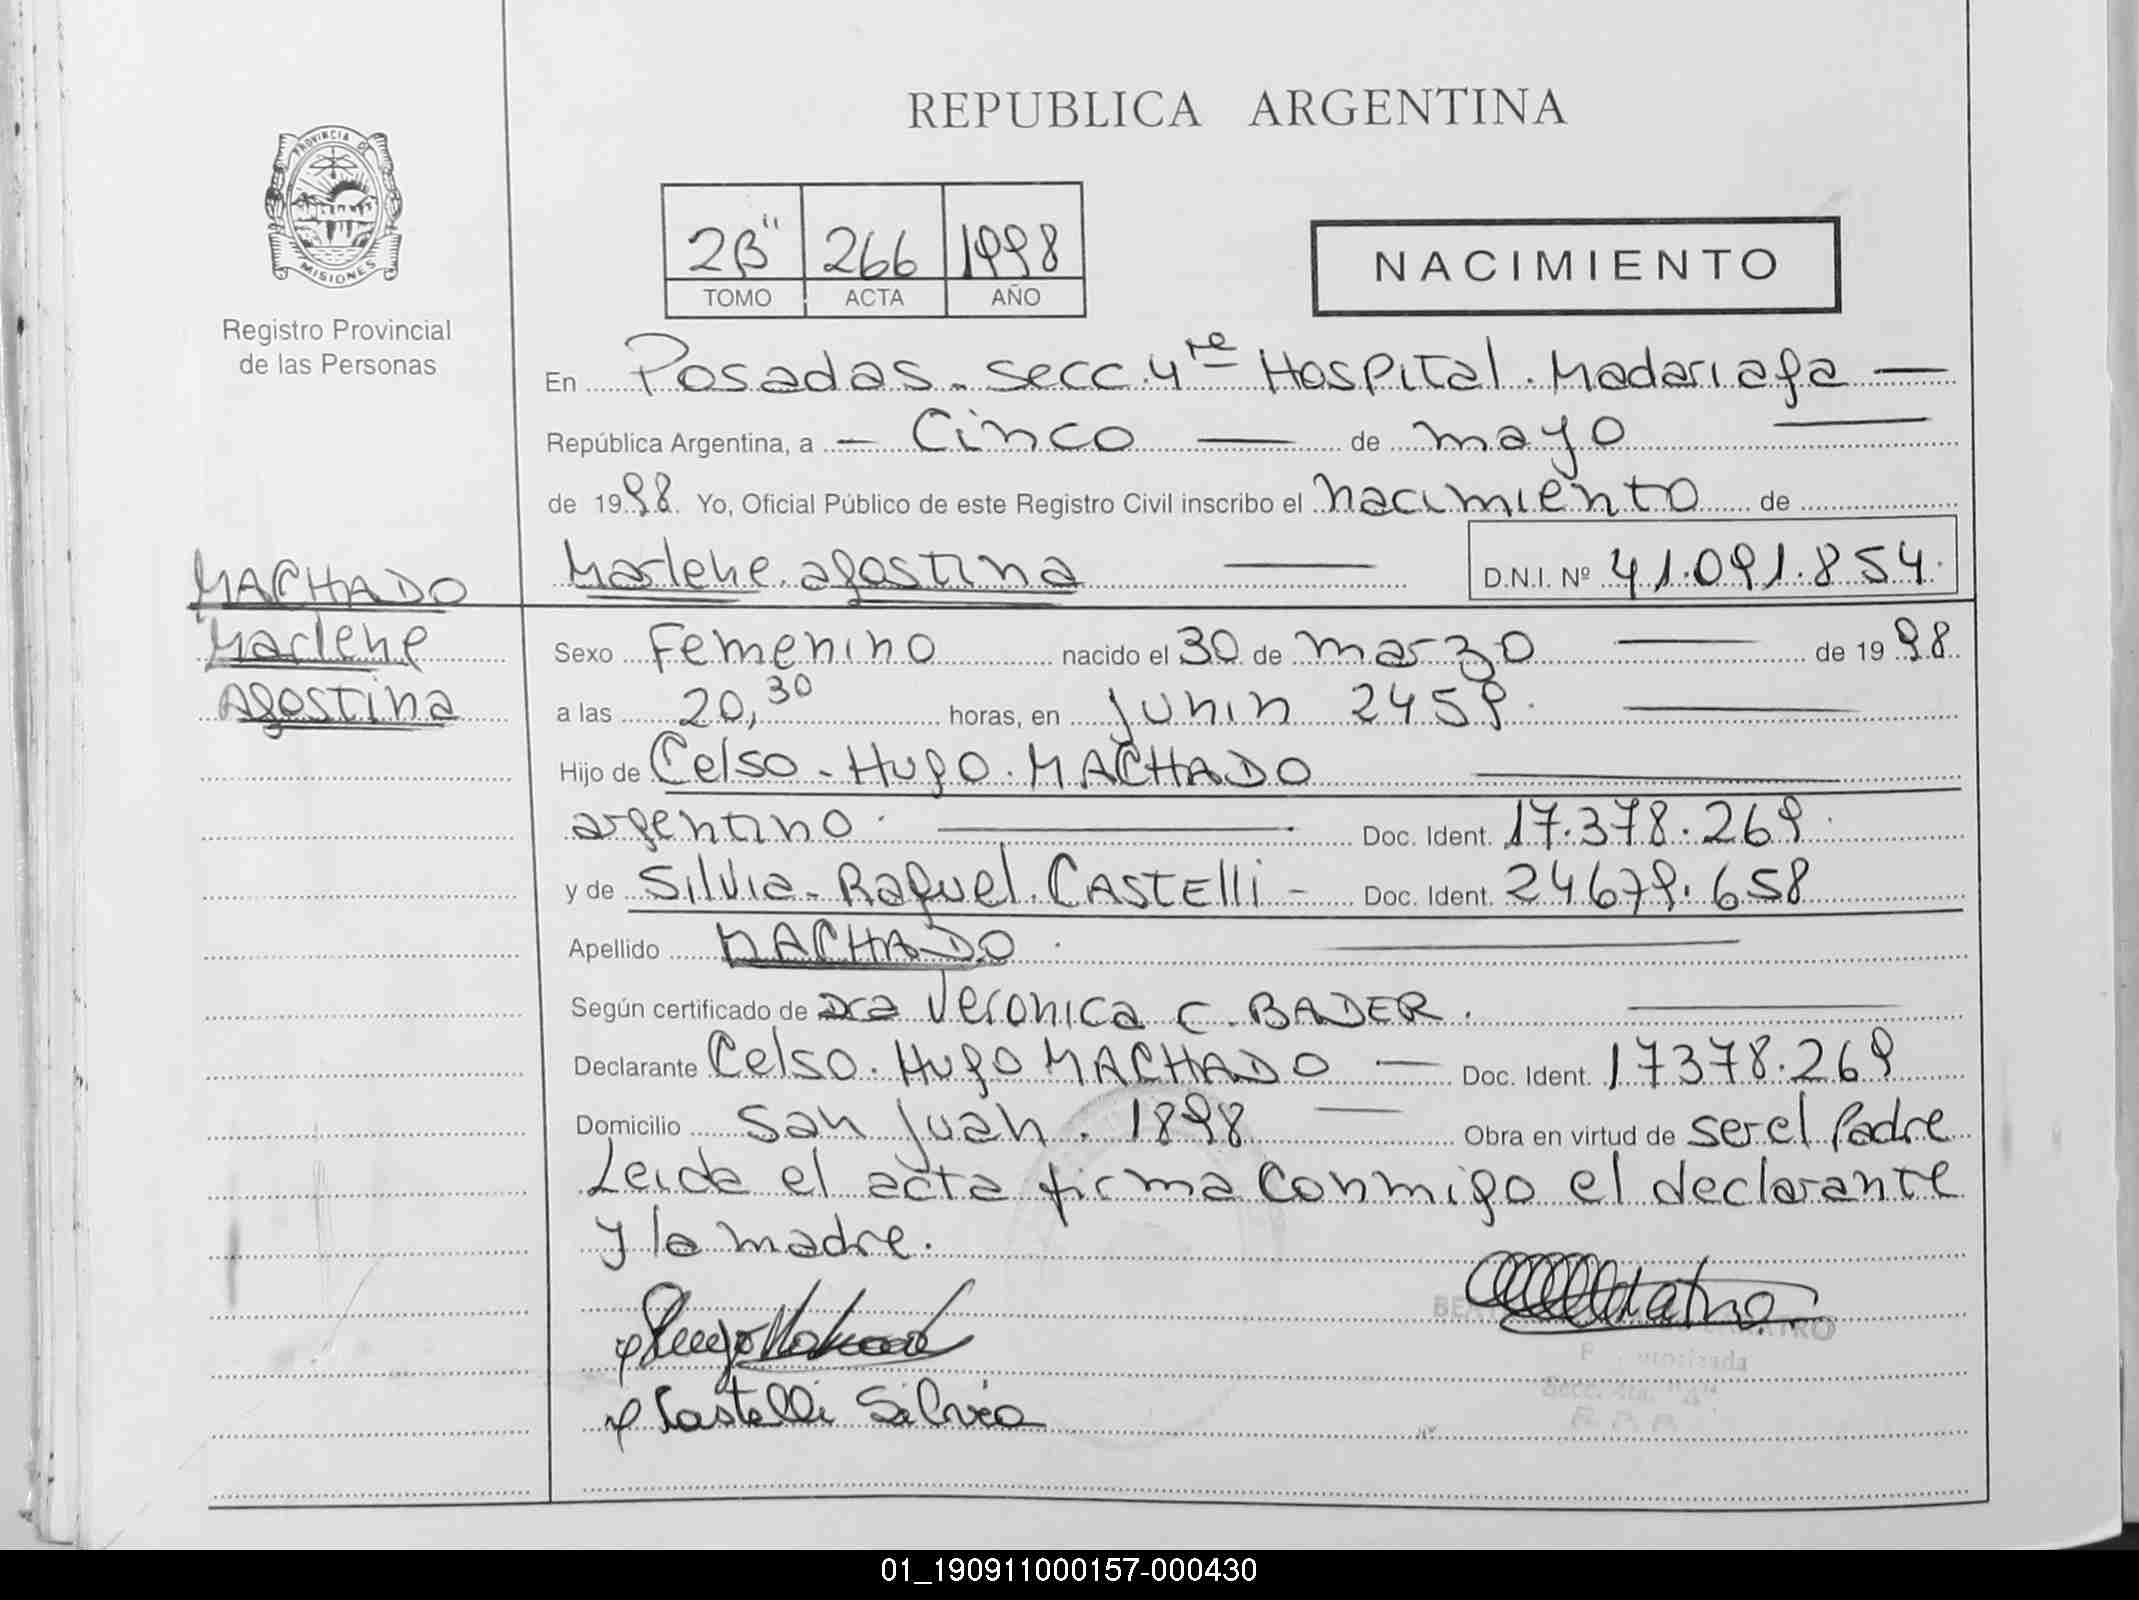 REPUBLICA ARGENTINA
PROVINCIA DE
MISIONES
Registro Provincial
de las Personas
2B" 266 1998
TOMO ACTA AÑO
NACIMIENTO
En Posadas. secc. 4ta Hospital. Madariaga
República Argentina, a Cinco de mayo
de 1998 Yo, Oficial Público de este Registro Civil inscribo el nacimiento de
Marlene. agostina D.N.I. Nº 41.091.854.
MACHADO
Marlene
Agostina
Sexo Femenino nacido el 30 de marzo de 1998
a las 20,30 horas, en Junin 2459.
Hijo de Celso - Hugo. MACHADO
argentino. Doc. Ident. 17.378.269.
y de Silvia - Raquel. CASTElli - Doc. Ident. 24679.658
Apellido MACHADO.
Según certificado de Dra Veronica C. BADER.
Declarante Celso. Hugo MACHADO Doc. Ident. 17378.269
Domicilio San Juan. 1898 Obra en virtud de ser el Padre
Leida el acta firma conmigo el declarante
y la madre.
Castelli Silvia
Secc. 4ta. "A"
01_190911000157-000430